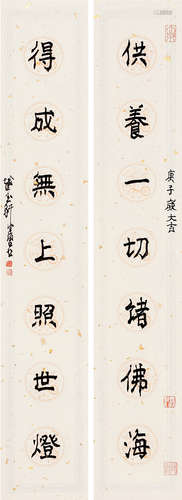 供養一切諸佛海
庚子歲大吉
得成無上照世燈